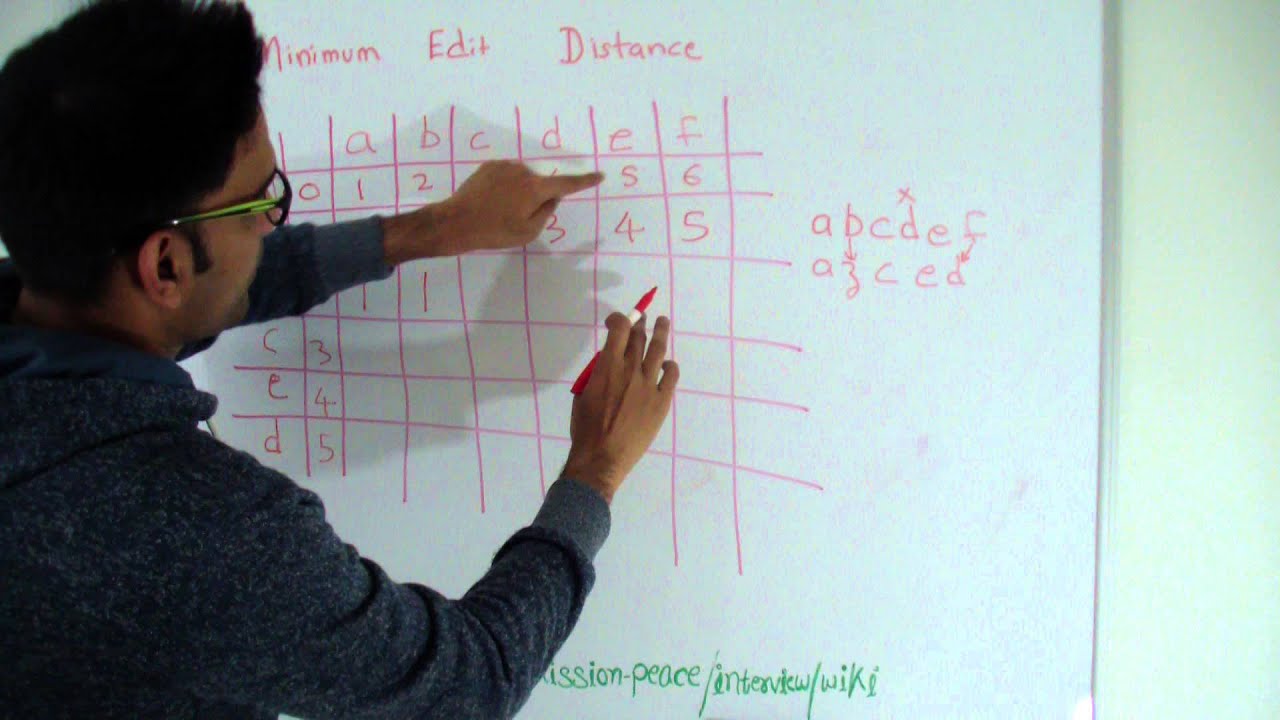 Minimum Edit Distance
a b c d e f
0 1 2 5 6
3 4 5
1 1
c 3
e 4
d 5
x
a b c d e f
a z c e d
mission-peace/interview/wiki